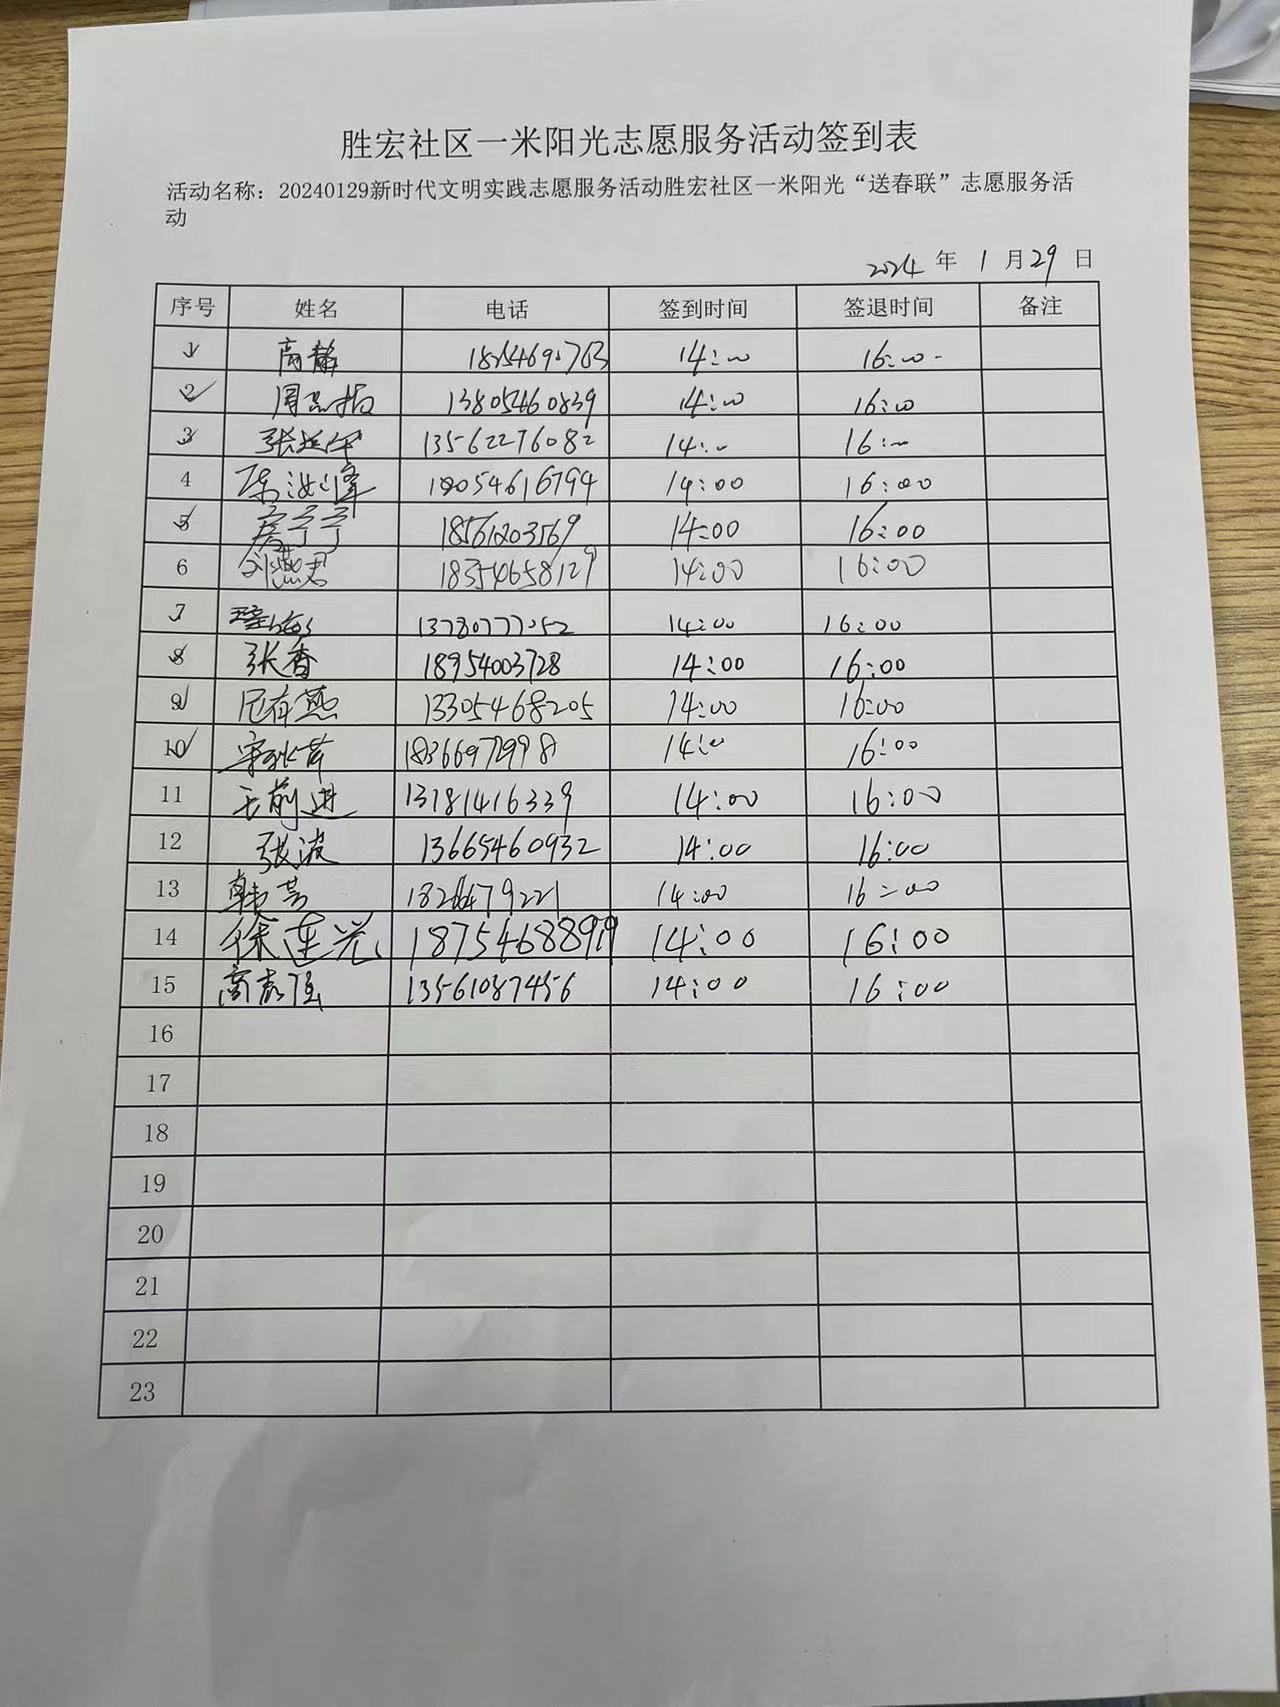 胜宏社区一米阳光志愿服务活动签到表
活动名称：20240129新时代文明实践志愿服务活动胜宏社区一米阳光“送春联”志愿服务活
动
2024 年 1 月 29 日
序号 姓名 电话 签到时间 签退时间 备注
1 高静 14:00 16:00
2 13805460839 14:00 16:00
3 13562276082 14:00 16:00
4 18054616794 14:00 16:00
5 房宁宁 18561203569 14:00 16:00
6 刘燕君 18354658129 14:00 16:00
7 14:00 16:00
8 张香 18954003728 14:00 16:00
9 尼有燕 13305468205 14:00 16:00
10 14:00 16:00
11 王前进 13181416339 14:00 16:00
12 张波 13665460932 14:00 16:00
13 韩芳 14:00 16:00
14 徐连光 14:00 16:00
15 13561087456 14:00 16:00
16
17
18
19
20
21
22
23